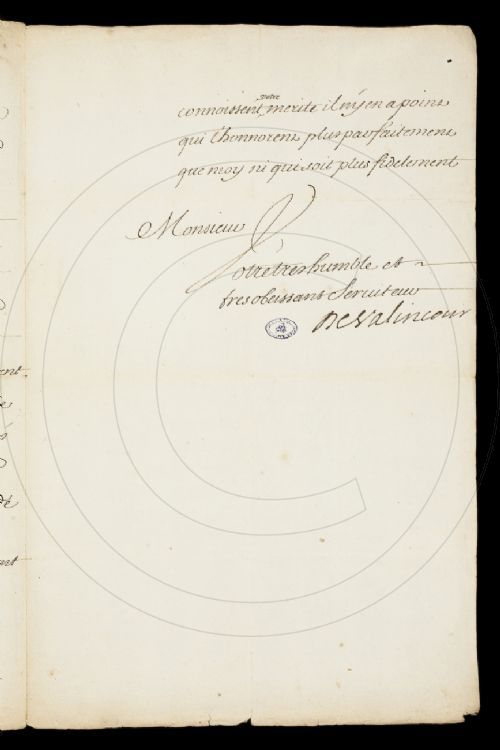 votre
connoissent merite il n'y en a point
qui l'honnorent plus parfaitement
que moy ni qui soit plus fidelement
Monsieur
Votre tres humble et
tres obeissant Serviteur
De Valincour